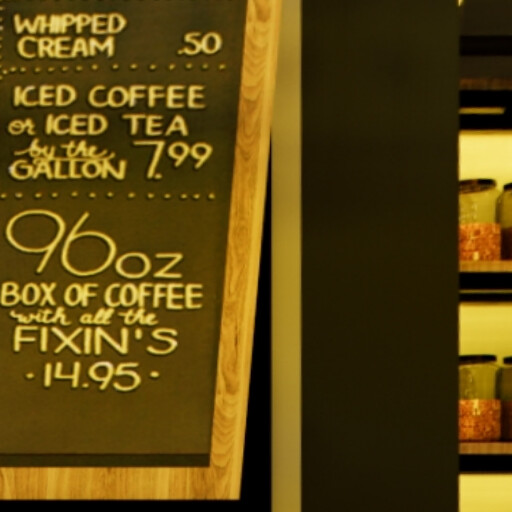 WHIPPED
CREAM .50
ICED COFFEE
or ICED TEA
by the
GALLON 7.99
96oz
BOX OF COFFEE
with all the
FIXIN'S
·14.95·